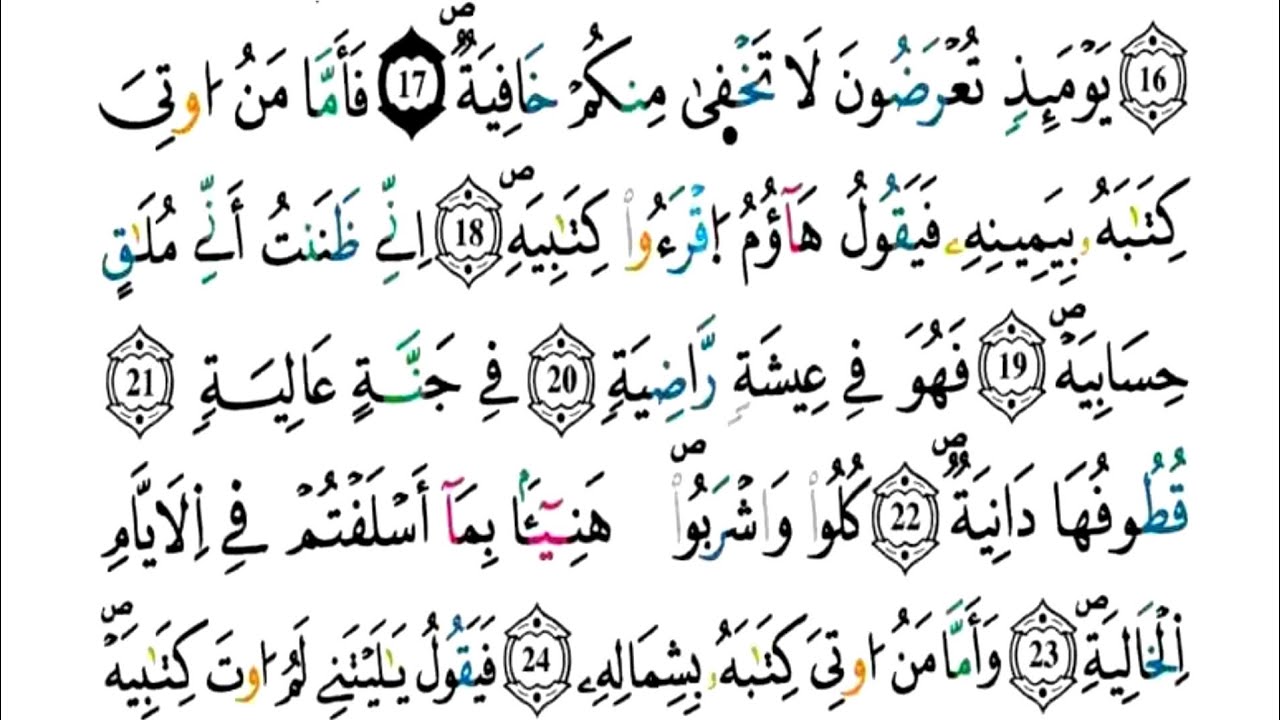 16 يَوْمَئِذٍ تُعْرَضُونَ لَا تَخْف۪ىٰ مِنكُمْ خَافِيَةٌ ۖ 17 فَأَمَّا مَنُ اوتِىَ
كِتَٰبَهُۥ بِيَمِينِهِۦ فَيَقُولُ هَآؤُمُ اقْرَءُوا۟ كِتَٰبِيَهِ ۖ 18 اِنِّے ظَنَنتُ أَنِّے مُلَٰقٍ
حِسَابِيَهْ ۖ 19 فَهُوَ فِے عِيشَةٍ رَّاضِيَةٍ 20 فِے جَنَّةٍ عَالِيَةٍ 21
قُطُوفُهَا دَانِيَةٌ ۖ 22 كُلُوا۟ وَاشْرَبُوا۟ ۖ هَنِيٓـَٔاۢ بِمَآ أَسْلَفْتُمْ فِے اِلَايَّامِ
اِلْخَالِيَةِ ۖ 23 وَأَمَّا مَنُ اوتِىَ كِتَٰبَهُۥ بِشِمَالِهِۦ 24 فَيَقُولُ يَٰلَيْتَنِے لَمُ اوتَ كِتَٰبِيَهْ ۖ